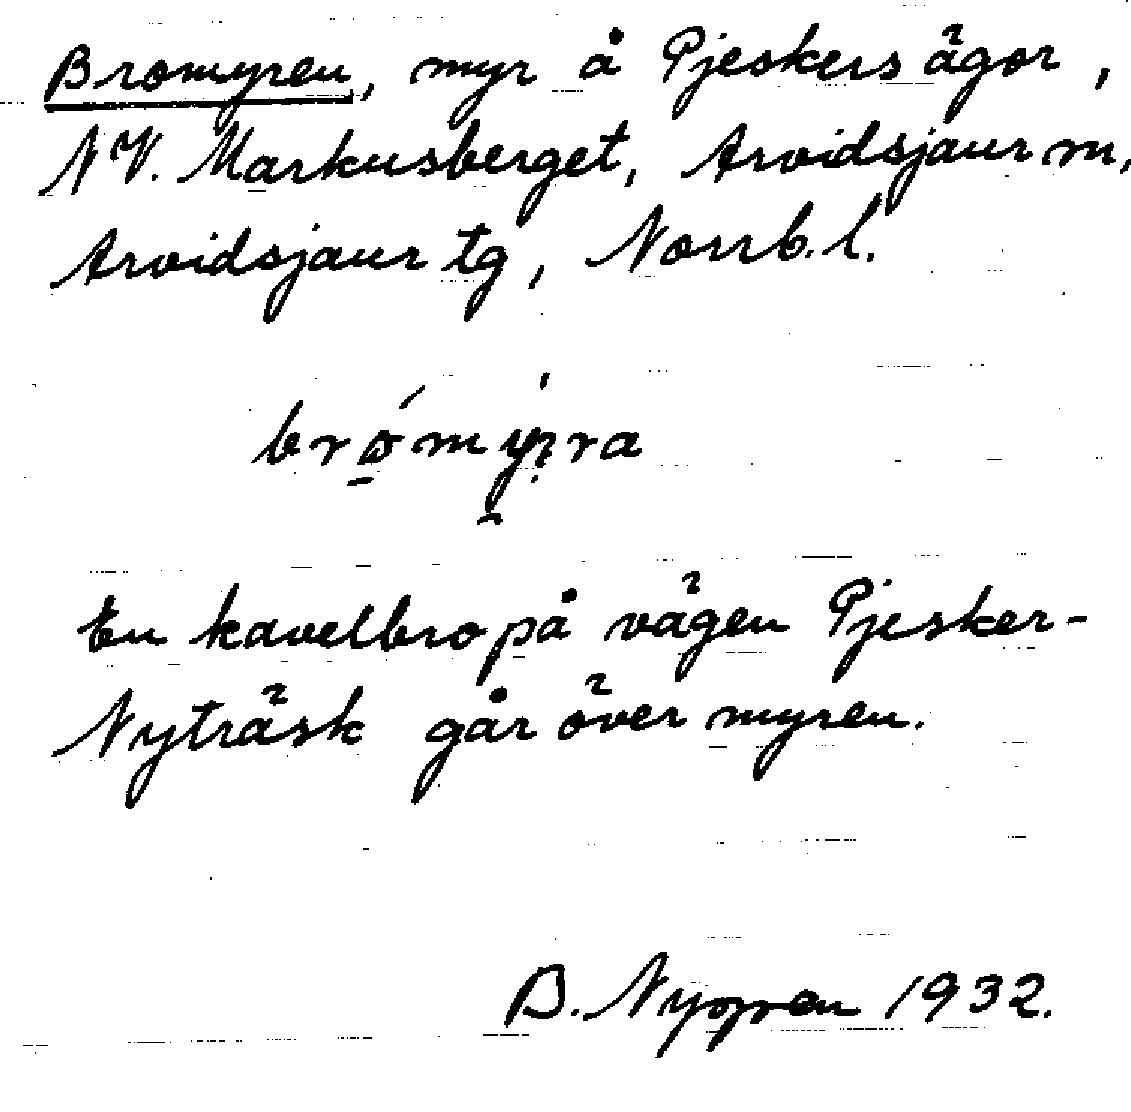 Bromyren, myr å Pjeskers ägor,
NV. Markusberget, Arvidsjaur sn,
Arvidsjaur tg, Norrb. l.
En kavelbro på vägen Pjesker-
Nyträsk går över myren.
B. Nygren 1932.